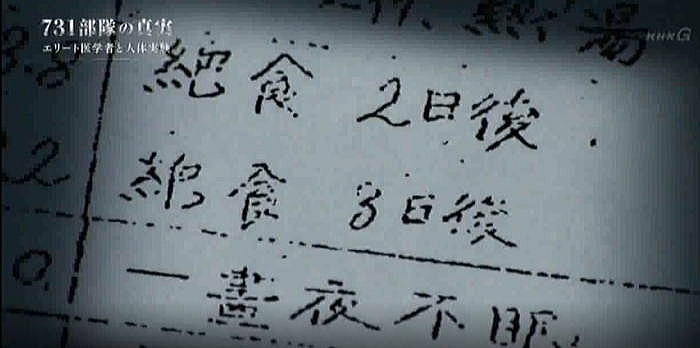 731部隊の真実
エリート医学者と人体実験
NHK G
湯
絶食 2日後
絶食 3日後
一晝夜不眠